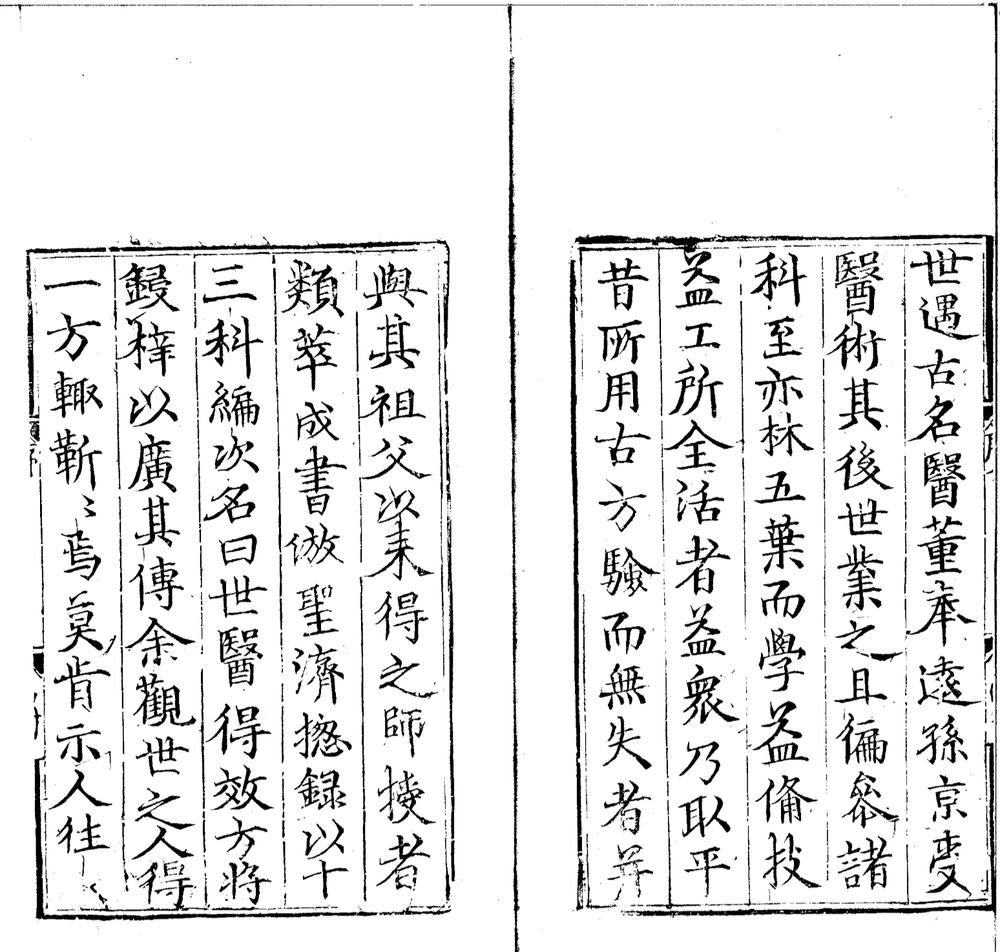 世遇古名醫董奉遠孫京受
醫術其後世業之且徧叅諸
科至亦林五葉而學益備技
益工所全活者益衆乃取平
昔所用古方驗而無失者并
與其祖父以来得之師授者
類萃成書倣聖濟揔録以十
三科編次名曰世醫得效方将
鋟梓以廣其傳余觀世之人得
一方輙靳〻焉莫肯示人往